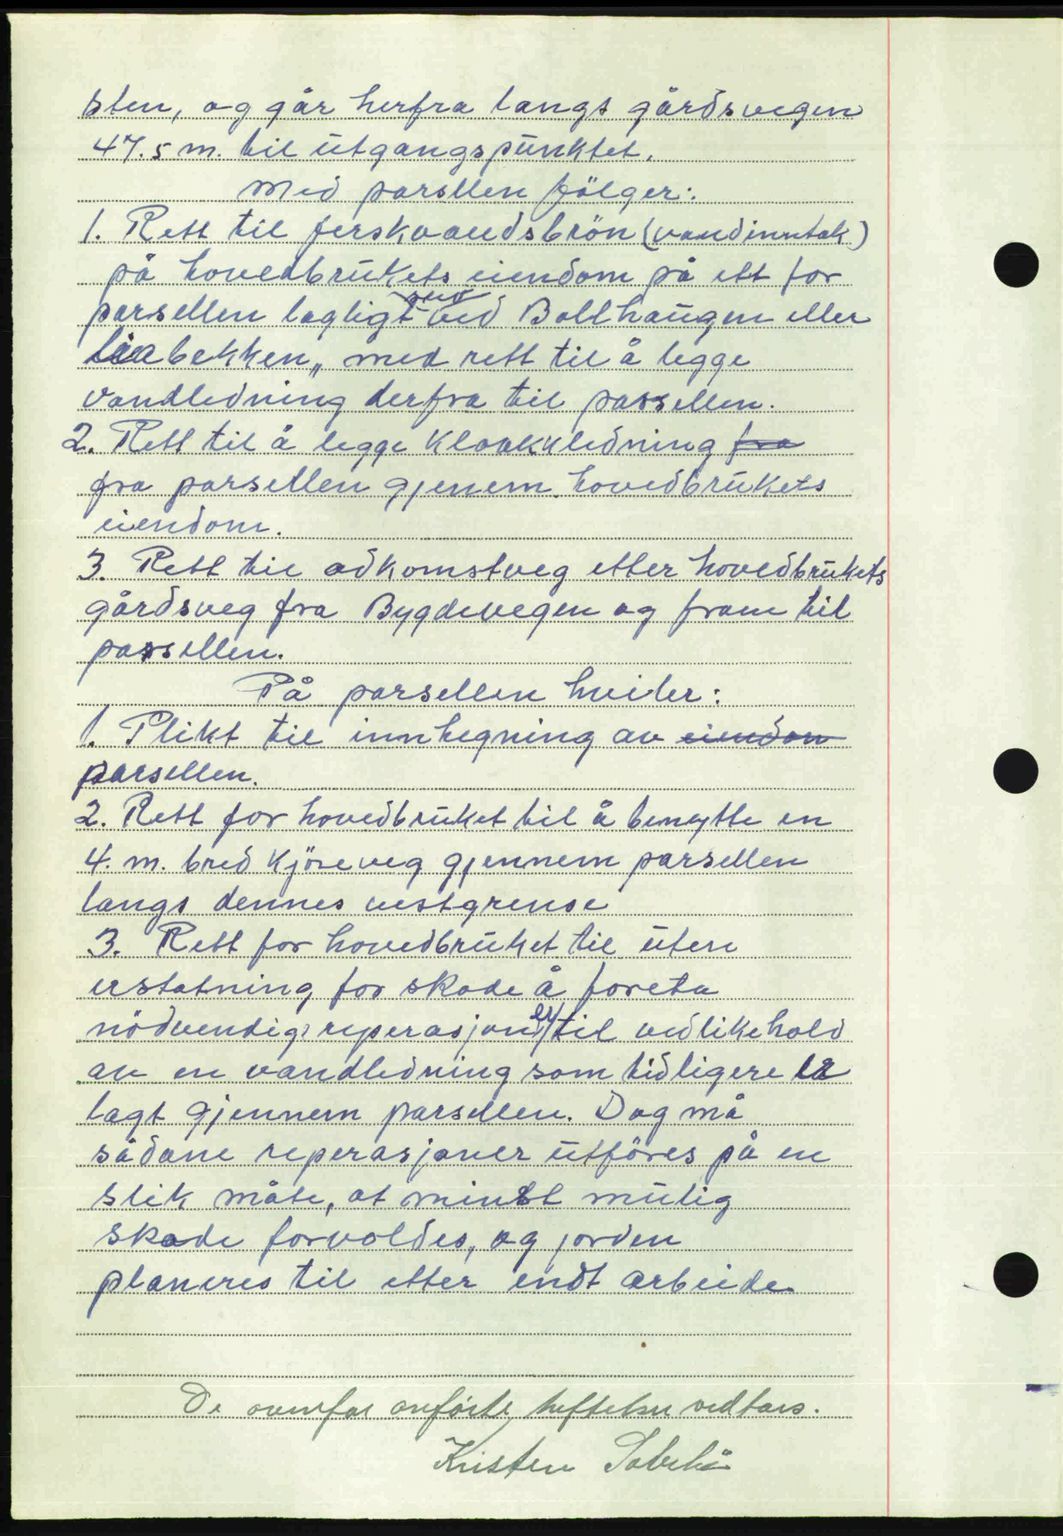 sten, og går herfra langs gårdsvegen
47.5 m. til utgangspunktet.
Med parsellen følger:
1. Rett til ferskvandsbrön (vandinntak)
på hovedbrukets eiendom på ett for
parsellen lagligt ved Bollhaugen eller
Liabekken„ med rett til å legge
vandledning derfra til parsellen.
2. Rett til å legge kloakkledning fra
fra parsellen gjenem hovedbrukets
eiendom.
3. Rett til adkomstveg etter hovedbrukets
gårdsveg fra Bygdevegen og fram til
parsellen.
På parsellen hviler:
1. Plikt til innhegning av eiendom
parsellen.
2. Rett for hovedbruket til å benytte en
4. m. bred kjöreveg gjennem parsellen
langs dennes vestgrense
3. Rett for hovedbruket til uten
erstatning for skade å foreta
nödvendige reperasjoner til vedlikehold
av en vandledning som tidligere er
lagt gjennem parsellen. Dog må
sådane reperasjoner utföres på en
slik måte, at minst mulig
skade forvoldes, og jorden
planeres til etter endt arbeide
De ovenfor anförte heftelser vedtaes.
Kristen